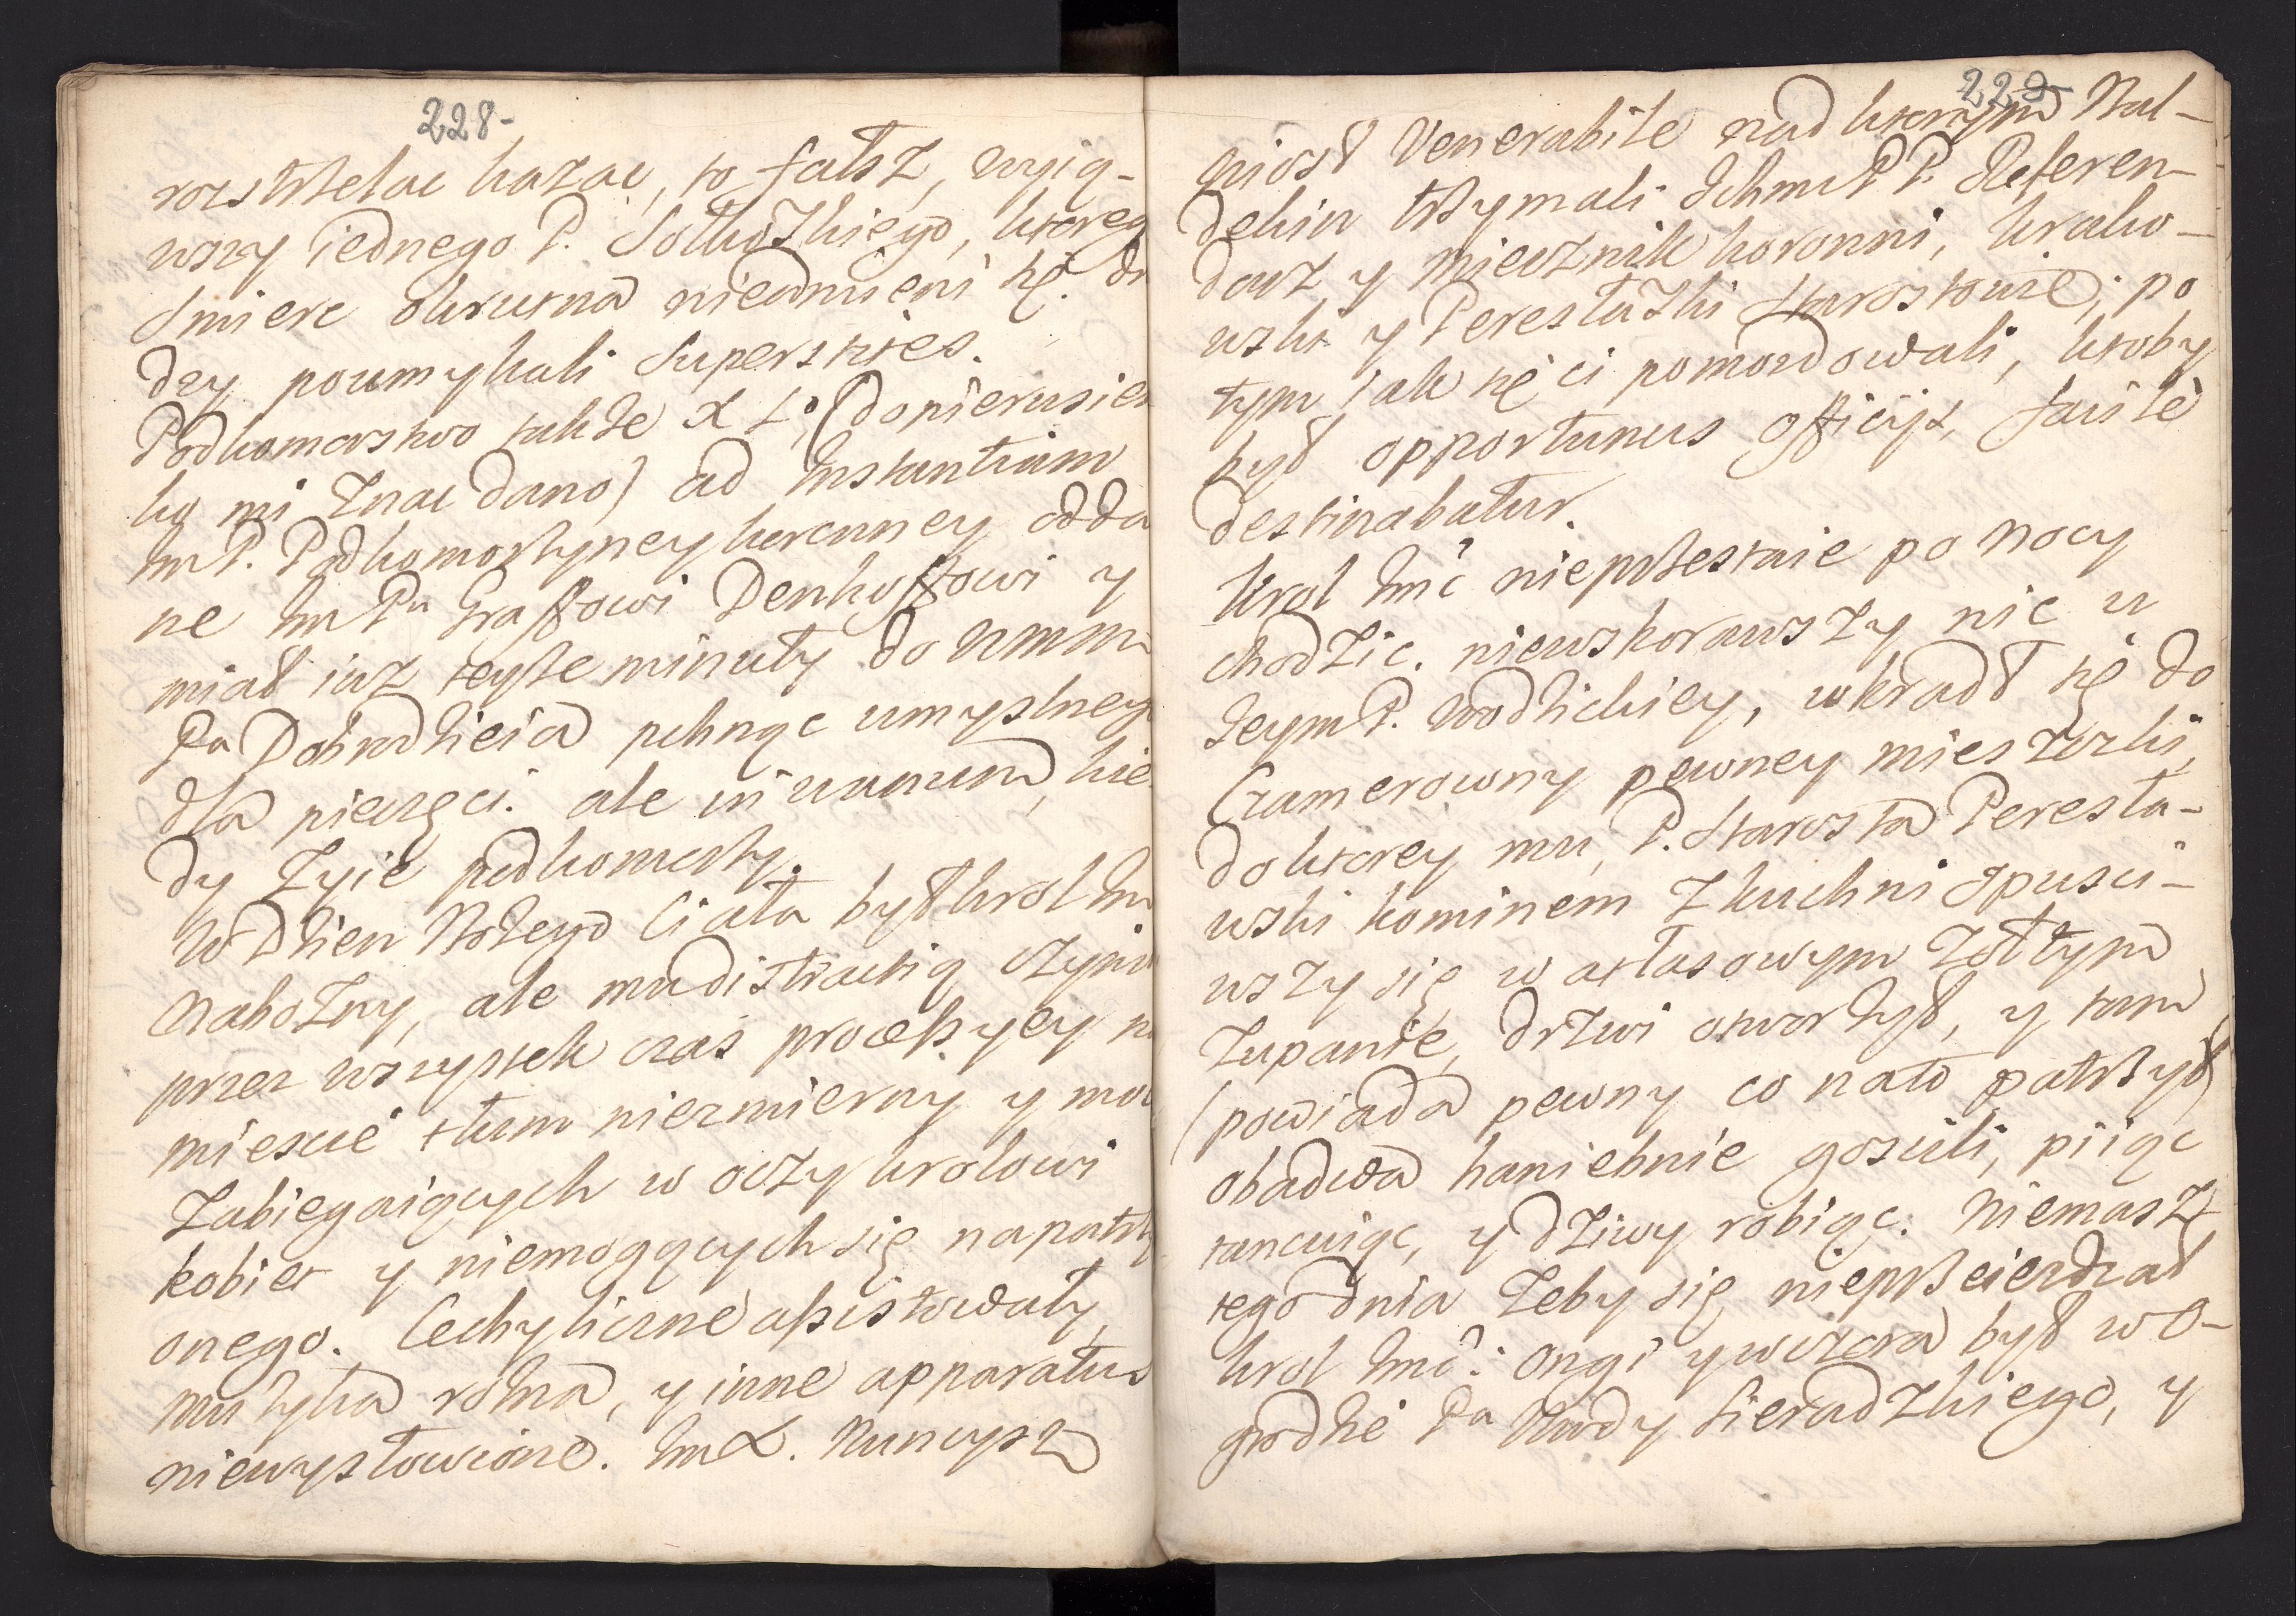 228-
rozstrzelac kazac, to fałsz, wyią-
wszy iednego P. Sołkozkiego, ktoreg
smierc okrutna nieodmieni sę. dr
dzy poumykali superstites.
Podkomorstwo także X L.
ko mi znac dano) ad Instantiam
Im P. Podkomorzyney koronney odda
ne Im Pu Graffowi Denhoffowi y
miał iuz teyze minuty do
Pa Dobrodzieia pchnąc umyslneg
dla pieczęci. ale in vanum, kie
dy zyie podkomorzy.
W Dzien Bozego Ciała był krol Im
nabozny, ale mu distractią czyni
przez wszystek czas processyey n
miescie tłum niezmierny y mo
zabiegaiących w oczy krolowi
kobiet y niemogących się napatrz
onego. Cechy liczne assistowały,
muzyka rozna, y inne apparatus
niewysłowione. Im X. Nuncyusz
229
niosł Venerabile nad ktorym Bal-
dekin trzymali Ichmc PP. Referen-
darz y Miecznik koronni, krako-
wski y Peresłazki Starostowie; po
tym iak sę ci pomordowali, ktoby
był opportunus officijs, facile
destinabatur.
Krol Imc nieprzestaie po nocy
chodzic. niewskorawszy nic u
Jeym P. Wodzickiey, wkradł sę do
Cramerowny pewney mieszczki,
do ktorey mu, P. Starosta Peresła-
wski kominem z kuchni spusci-
wszy się w atłasowym zołtym
zupanie, drzwi otworzył, y tam
(powiada pewny co nato patrzył)
obadwa haniebnie goscili, piiąc
tancuiąc, y dziwy robiąc. Niemasz
tego dnia zeby się nieprzeiezdzał
krol Imc: ongi y wczora był w O-
grodzie Pa Wwdy Sieradzkiego, y